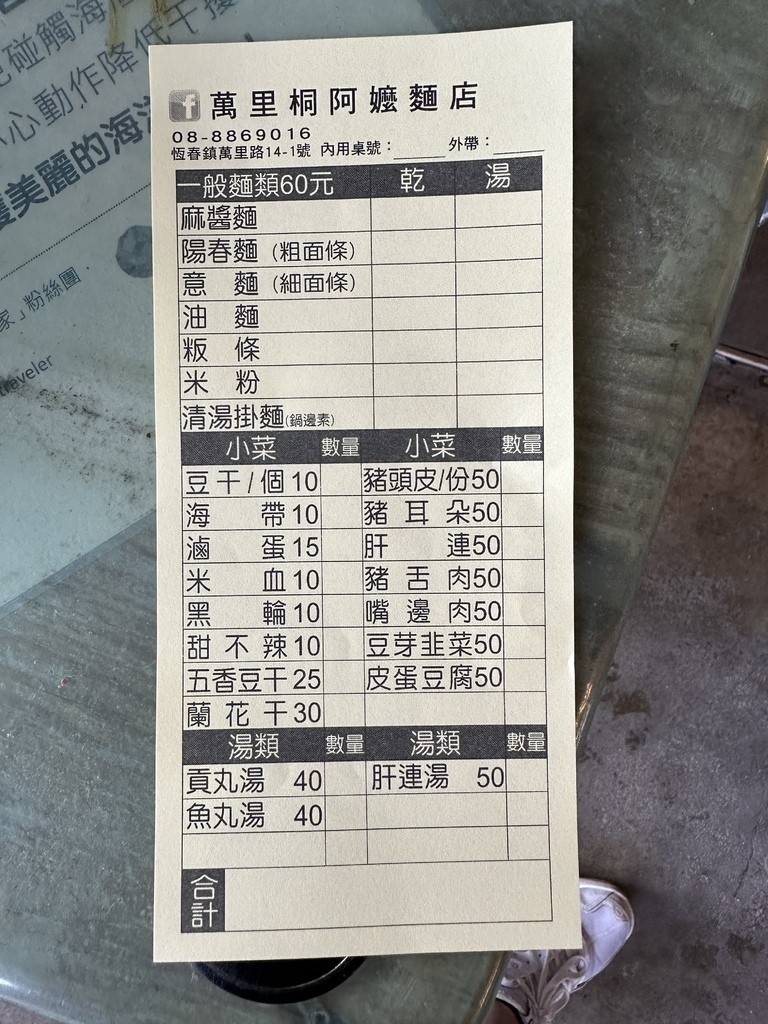 己碰觸海
心動作降低干擾
護美麗的海
家」粉絲團
traveler
f 萬里桐阿嬤麵店
08-8869016
恆春鎮萬里路14-1號 內用桌號：_____ 外帶：_____
一般麵類60元 乾 湯
麻醬麵
陽春麵（粗面條）
意 麵（細面條）
油 麵
粄 條
米 粉
清湯掛麵(鍋邊素)
小菜 數量 小菜 數量
豆干/個10 豬頭皮/份50
海帶10 豬耳朵50
滷蛋15 肝連50
米血10 豬舌肉50
黑輪10 嘴邊肉50
甜不辣10 豆芽韭菜50
五香豆干25 皮蛋豆腐50
蘭花干30
湯類 數量 湯類 數量
貢丸湯 40 肝連湯 50
魚丸湯 40
合計